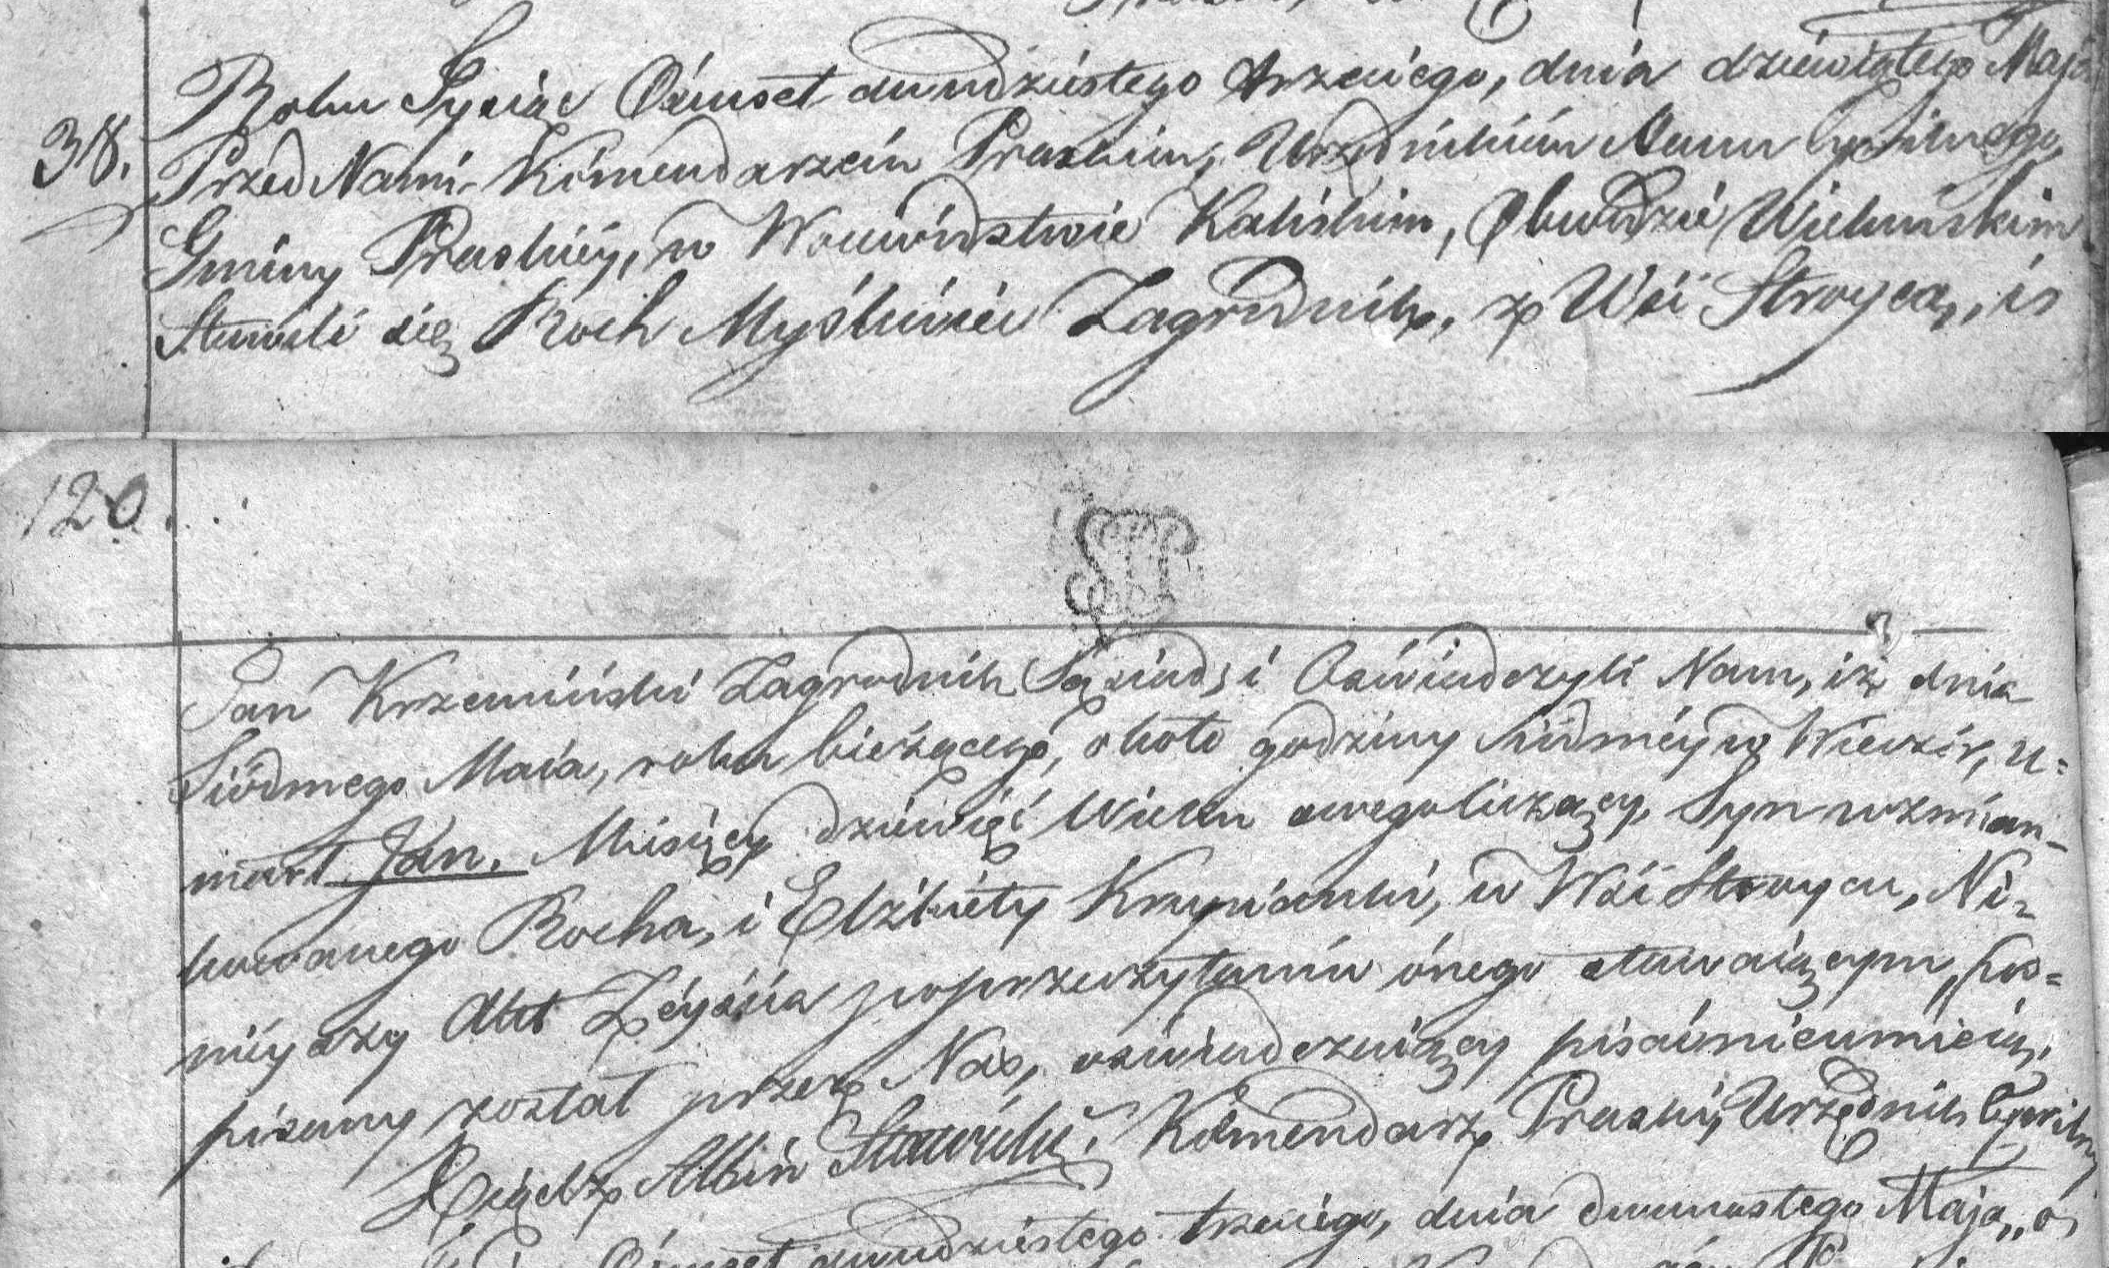 38.
Roku Tysiąc Ósmset dwudziestego trzeciego, dnia dziewiątego Maja
Przed Nami Kòmendarzem Praskim, Urzędnikiem Stanu Cywilnego,
Gminy Praskiéy, w Woiewództwie Kaliskim, Obwodzie Wieluńskim
Stawili się Roch Myśliwiec Zagrodnik, z Wsi Stroyca, is
120.
Jan Krzemiński Zagrodnik Sąsiad, i Oświadczyli Nam, iż dnia
Siódmego Maia, roku bieżącego, około godziny siódméy w Wieczór, u=
marł Jan. Miesięcy dziewięć Wieku swego liczący, Syn wzmian=
kowanego Rocha, i Elżbiéty Krzypianki, w Wsi Stroycu, Ni=
niéyszy Akt Zéyścia po przeczytaniu ónego stawaiącym, pod=
pisany został przez Nas, oświadczaiący pisać nieumieią.
Xiądz Albin Stawicki Kòmendarz Praski, Urzędnik Cywilny
Ósmset dwudziestego trzeciego, dnia dwunastego Maja, o